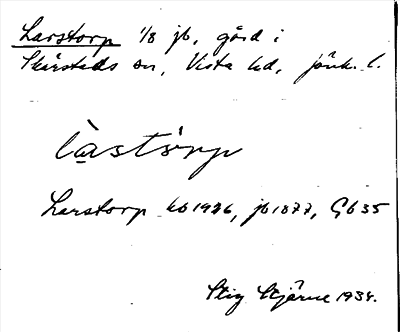 Larstorp 1/8 jb, gård i
Skärstads sn, Vista hd, Jönk. l.
làstòrp
Larstorp kb 1926, jb 1877, Gb 35
Stig Stjärne 1934.